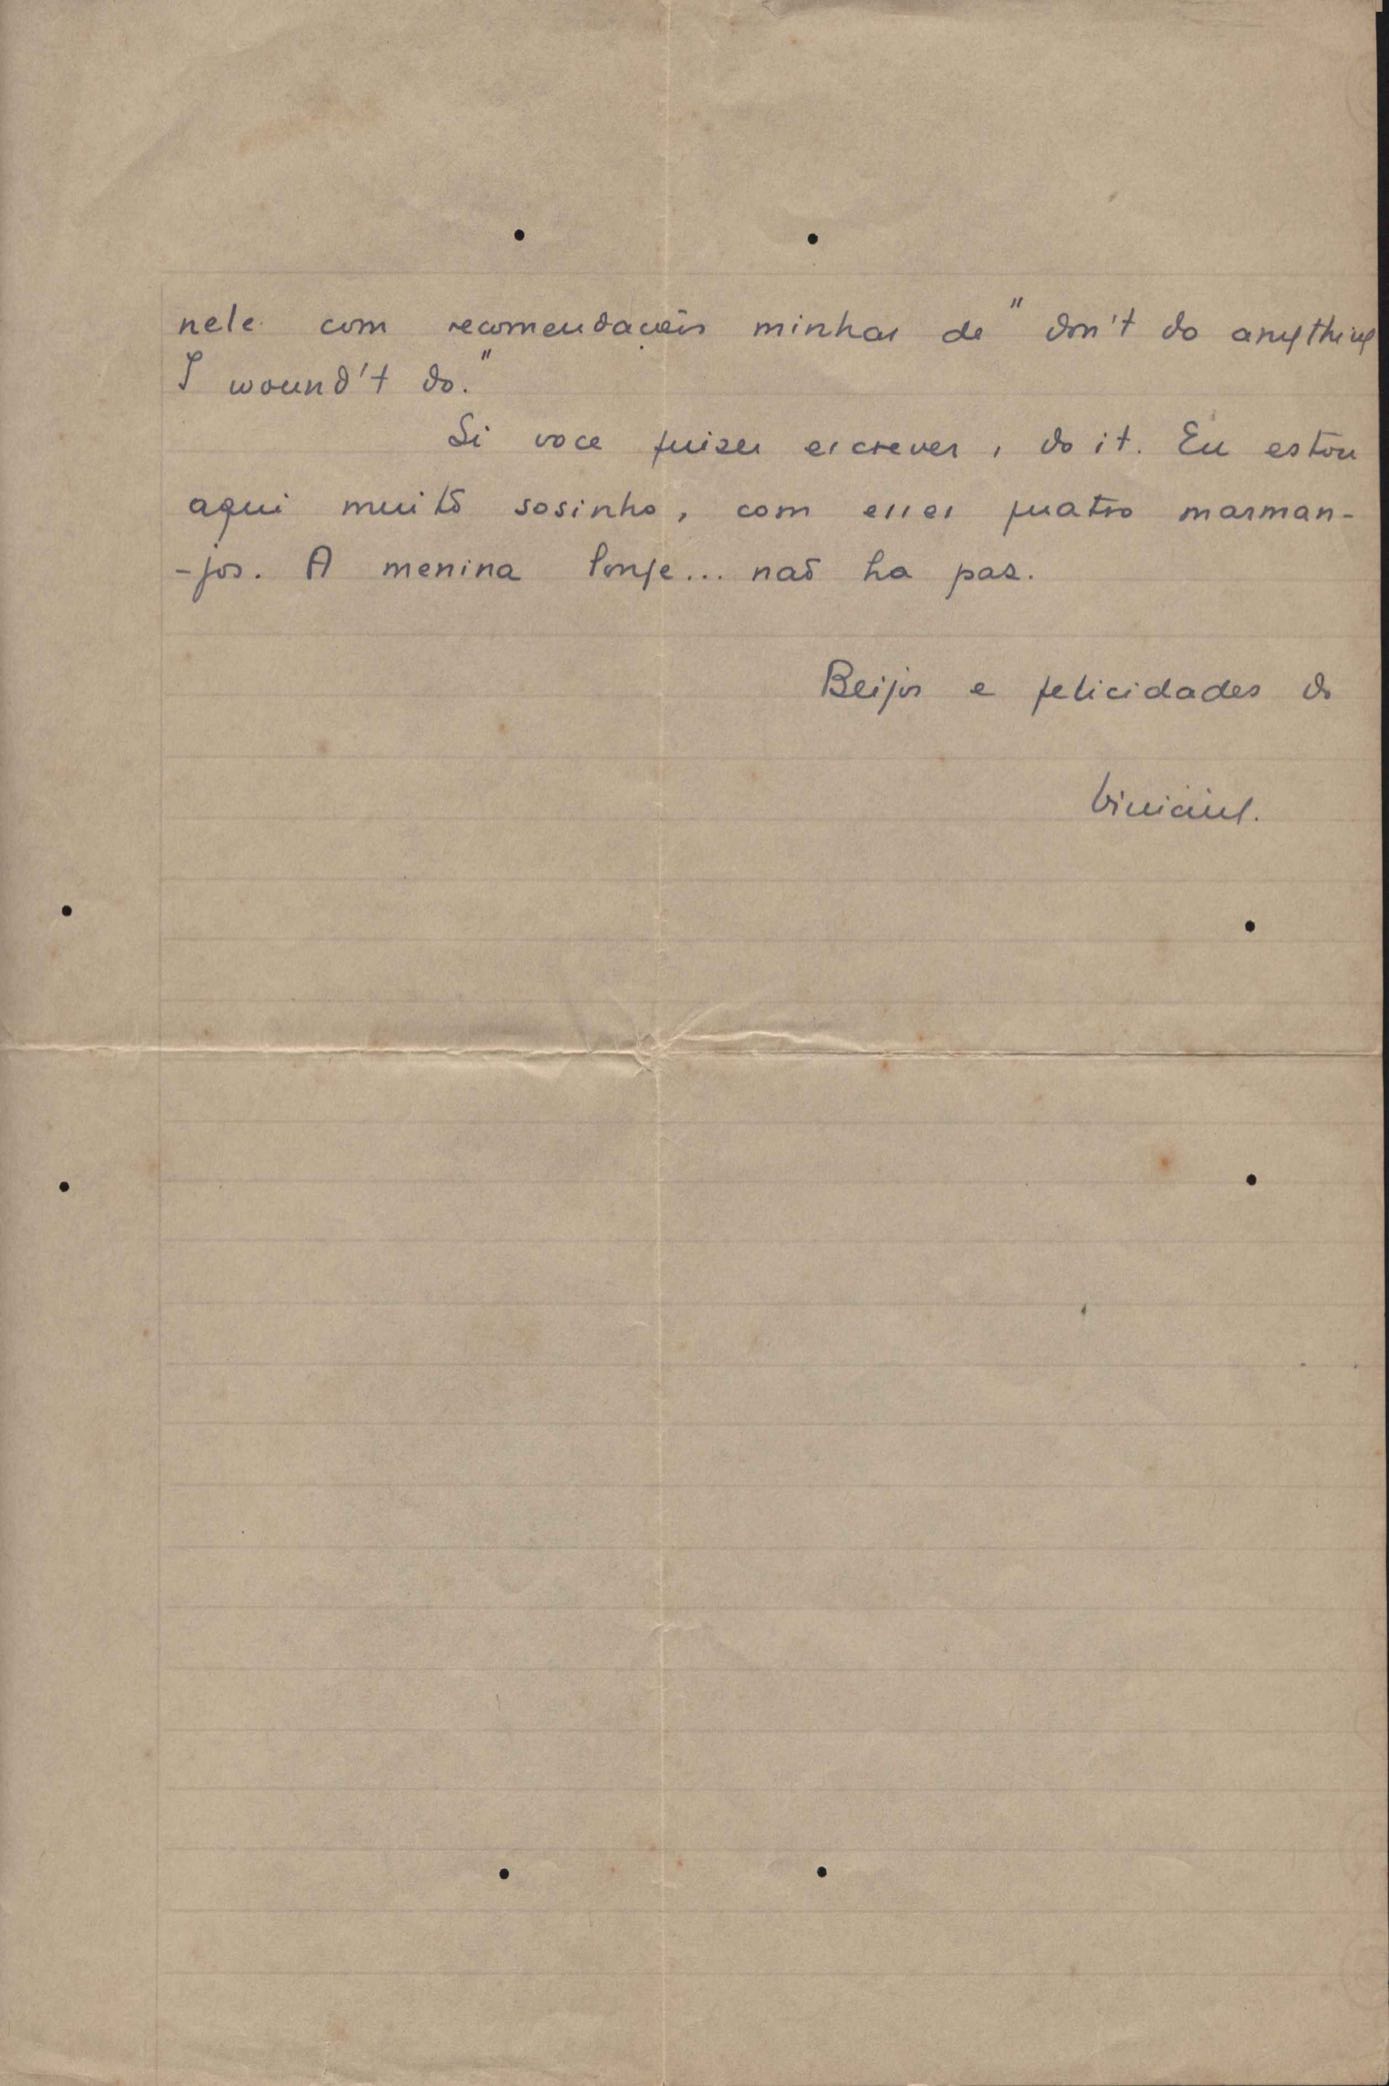 nele com recomendações minhas de "don't do anything
I wound't do."
Si voce quizer escrever, do it. Eu estou
aqui muito sosinho, com esses quatro marman-
-jos. A menina longe... naõ ha paz.
Beijos e felicidades do
Vinicius.